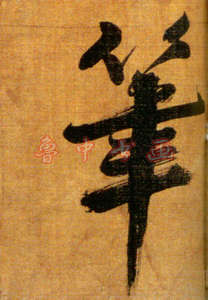 筆
魯中书画